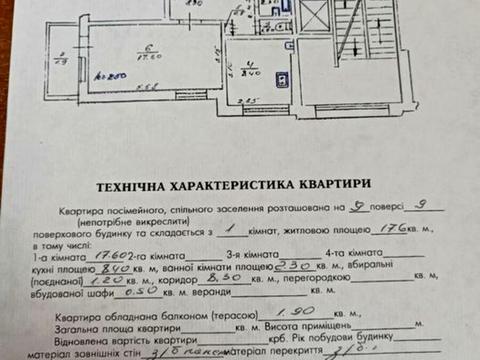 2.90
6
17.60
h=2.50
5.53
3.18
3.10
4
8.40
2.85
1.9
ТЕХНІЧНА ХАРАКТЕРИСТИКА КВАРТИРИ
Квартира посімейного, спільного заселення розташована на поверсі 9
(непотрібне викреслити)
поверхового будинку та складається з 1 кімнат, житловою площею 17.6 кв. м.,
в тому числі:
1-а кімната 17.60 2-га кімната 3-я кімната 4-та кімната
кухні площею 8.40 кв. м, ванної кімнати площею 2.30 кв. м., вбиральні
(поєднаної) 1.20 кв. м., коридор 8.30 кв. м., перегородкою кв. м.,
вбудованої шафи 0.50 кв. м. веранди кв. м.,
Квартира обладнана балконом (терасою) 1.90 кв. м.,
Загальна площа квартири кв. м. Висота приміщень м.
Відновлена вартість квартири крб. Рік побудови будинку
матеріал зовнішніх стін з/б матеріал перекриття з/б